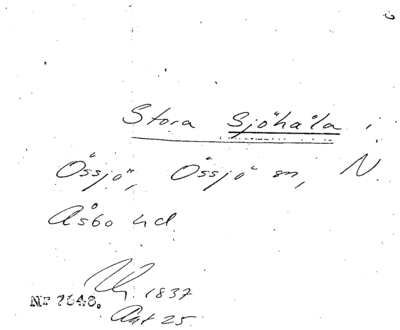 Stora Sjöhåla i
Össjö, Össjö sn, N.
Åsbo hd.
1837
Akt 25